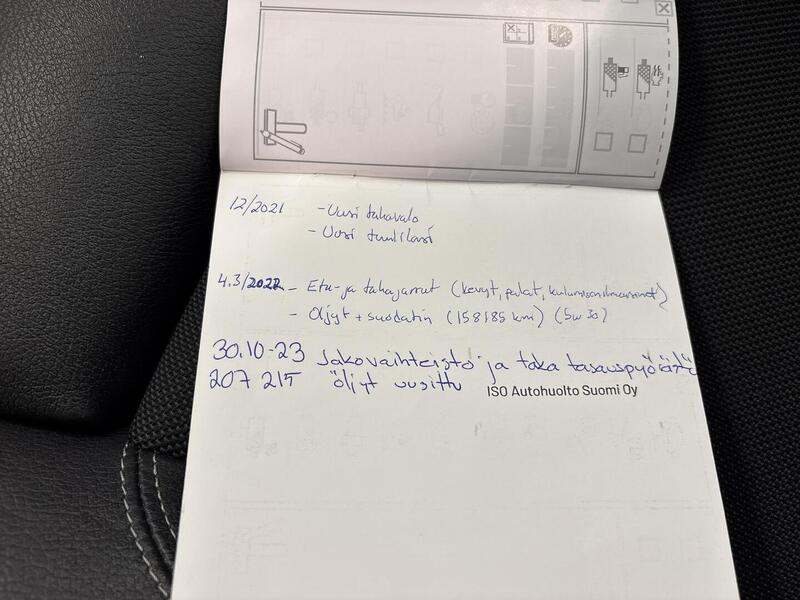 12/2021 - Uusi takavalo
- Uusi tuulilasi
4.3/2022 - Etu- ja takajarrut (levyt, palat, kulumisenilmaisimet)
- Öljyt + suodatin (158185 km) (5w30)
30.10-23 Jakovaihteisto ja taka tasauspyörästö
207 215 öljyt uusittu ISO Autohuolto Suomi Oy